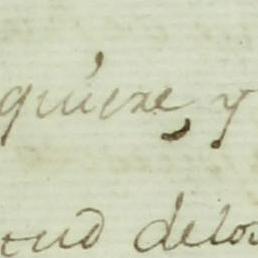 quiere, y
tud delos